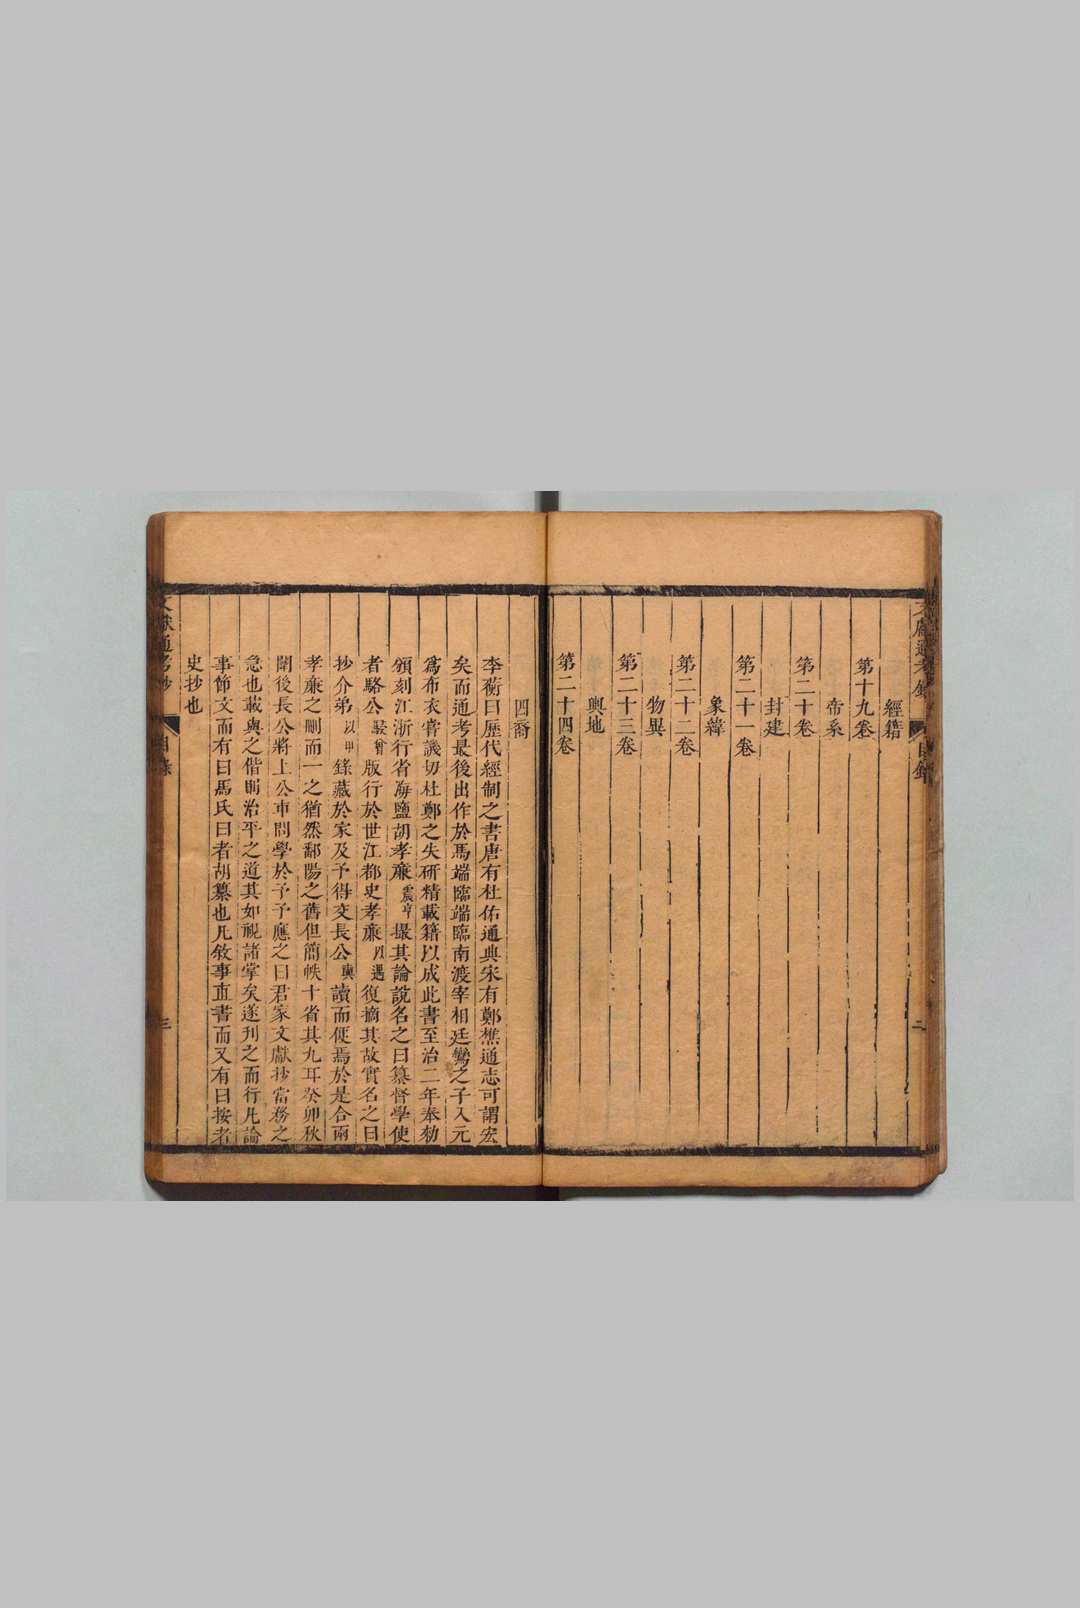 經籍
第十九卷
帝系
第二十卷
封建
第二十一卷
象緯
第二十二卷
物異
第二十三卷
輿地
第二十四卷
四裔
李蘅曰歷代經制之書唐有杜佑通典宋有鄭樵通志可謂宏
矣而通考最後出作於馬端臨端臨南渡宰相廷鸞之子入元
爲布衣嘗譏切杜鄭之失研精載籍以成此書至治二年奉勑
頒刻江浙行省海鹽胡孝廉震亨撮其論說名之曰纂督學使
者駱公駸曾版行於世江都史孝廉以遇復摘其故實名之曰
抄介弟以甲錄藏於家及予得交長公輿讀而便焉於是合兩
孝廉之刪而一之猶然鄱陽之舊但簡帙十省其九耳癸卯秋
闈後長公將上公車問學於予予應之曰君家文獻抄當務之
急也載與之偕則治平之道其如視諸掌矣遂刊之而行凡論
事節文而有曰馬氏曰者胡纂也凡敘事直書而又有曰按者
史抄也
文獻通考抄
目錄
三